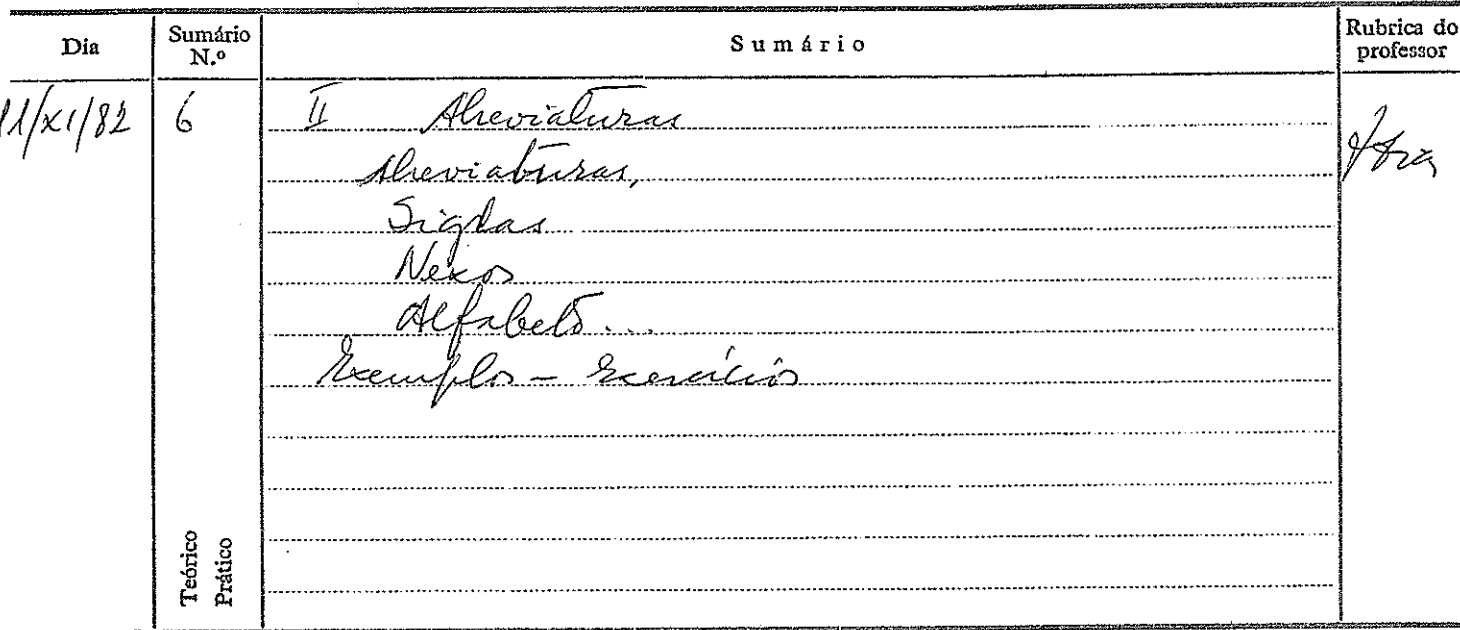 Dia Sumário N.º Sumário Rubrica do professor
11/XI/82 6 II Abreviaturas
Abreviaturas,
Siglas
Nexos
Alfabeto...
Exemplos - Exercícios
Teórico
Prático